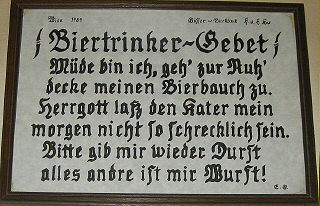 Biertrinker-Gebet
Müde bin ich, geh' zur Ruh'
decke meinen Bierbauch zu.
Herrgott laß den Kater mein
morgen nicht so schrecklich sein.
Bitte gib mir wieder Durst
alles andre ist mir Wurst!